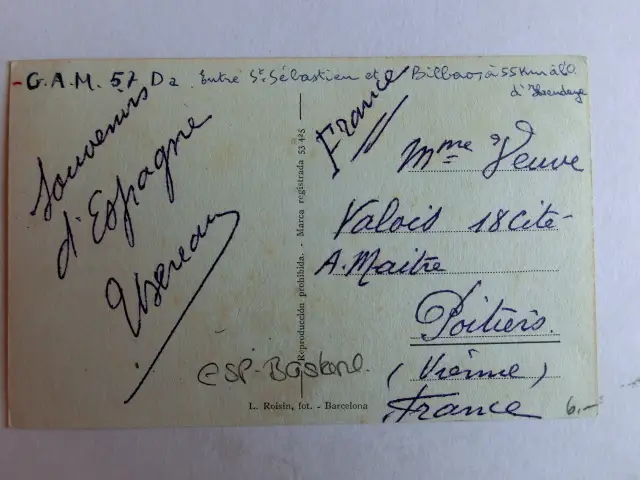 - G.A.M. 57 D2 Entre St Sébastien et Bilbao, à 55 Km à l'O.
d'Hendaye
Souvenirs
d'Espagne
France
Mme Veuve
Valois 18 Cité
A. Maitre
Poitiers.
(Vienne)
France
Reproducción prohibida. - Marca registrada 53425
ESP-
L. Roisin, fot. - Barcelona
6.-